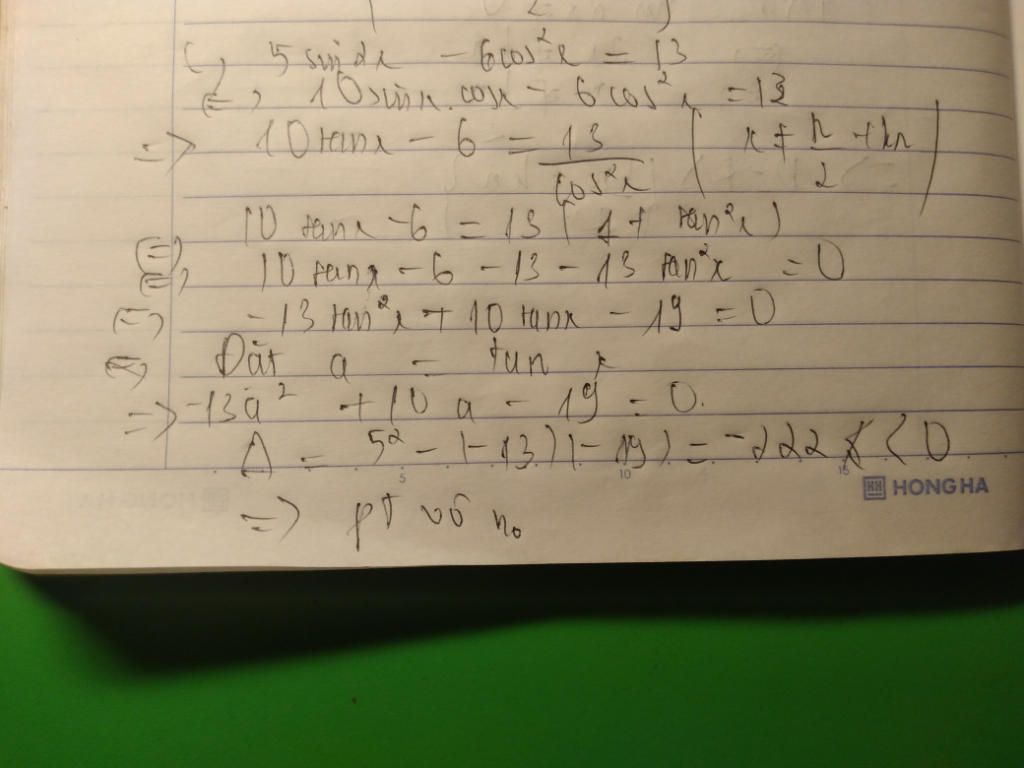 2
c, 5 sin2x - 6cos²x = 13
<=> 10 sinx.cosx - 6cos²x = 13
=> 10 tanx - 6 = 13/cos²x (x ≠ π/2 + kπ)
<=> 10 tanx - 6 = 13(1 + tan²x)
<=> 10 tanx - 6 - 13 - 13 tan²x = 0
<=> -13 tan²x + 10 tanx - 19 = 0
<=> Đặt a = tan x
=> -13a² + 10a - 19 = 0.
Δ = 5² - (-13)(-19) = -222 < 0
5 10 15
HONG HA
=> pt vô no